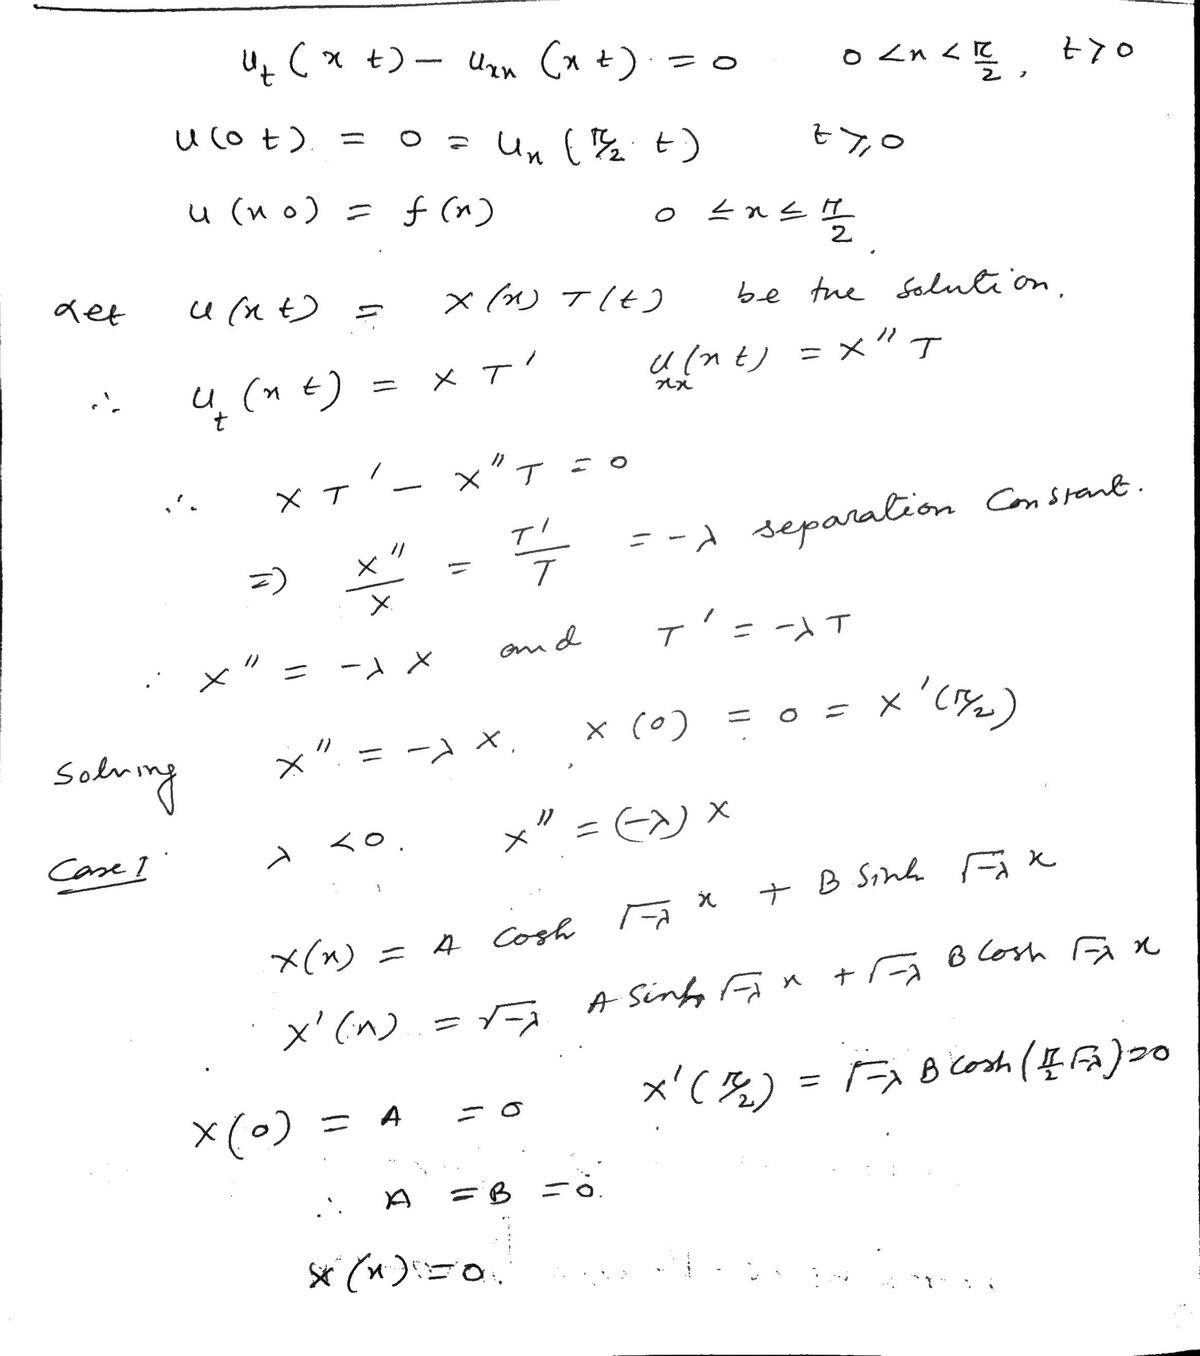 u_t (x t) - u_xx (x t) = 0 0 < x < π/2, t > 0
u(0 t) = 0 = u_x (π/2 t) t ≥ 0
u (x 0) = f(x) 0 ≤ x ≤ π/2
Let u(x t) = X(x) T(t) be the solution.
∴ u_t (x t) = X T' u_xx (x t) = X'' T
∴ X T' - X'' T = 0
⇒ X''/X = T'/T = -λ separation constant.
∴ X'' = -λ X and T' = -λ T
Solving X'' = -λ X, X(0) = 0 = X'(π/2)
Case I λ < 0. X'' = (-λ) X
X(x) = A cosh √-λ x + B sinh √-λ x
X'(x) = √-λ A sinh √-λ x + √-λ B cosh √-λ x
X(0) = A = 0 X'(π/2) = √-λ B cosh (π/2 √-λ) = 0
∴ A = B = 0.
X(x) = 0.